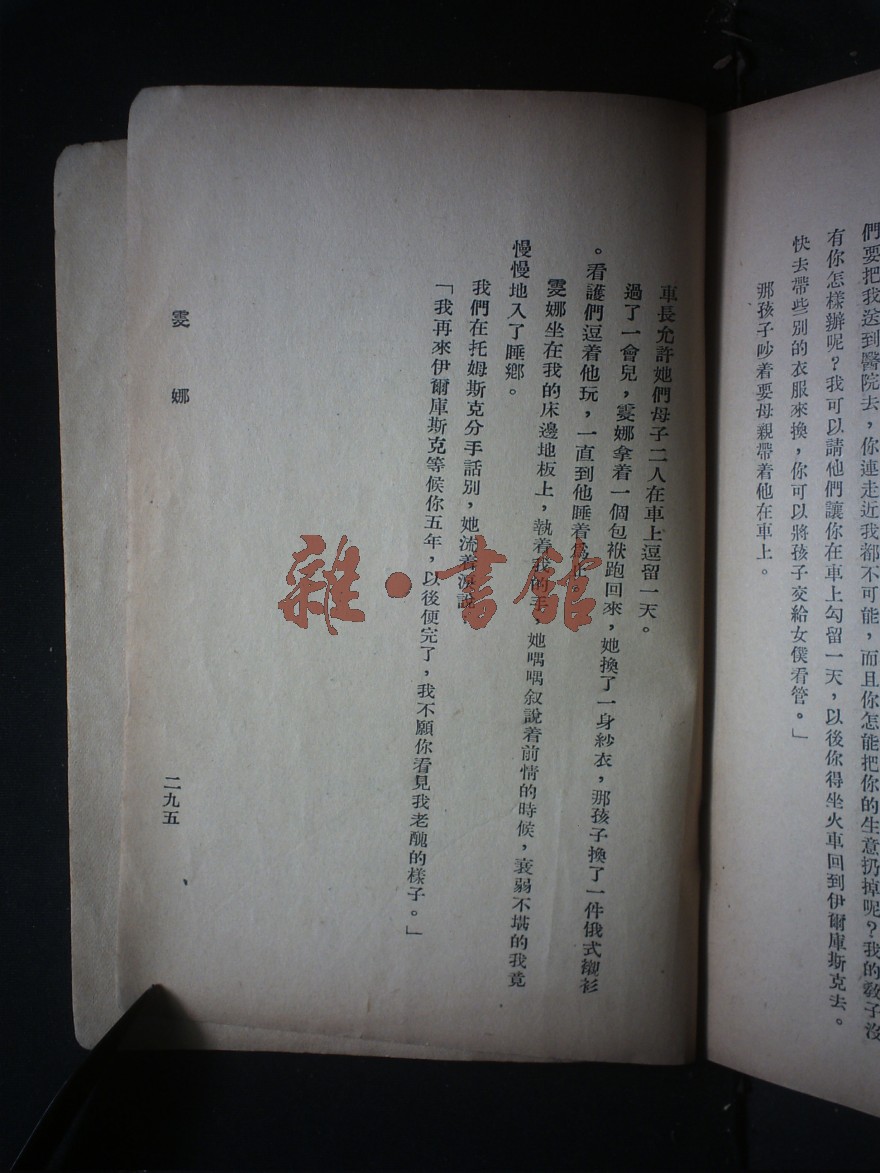 們要把我送到醫院去，你連走近我都不可能，而且你怎能把你的生意扔掉呢？我的教子沒
有你怎樣辦呢？我可以請他們讓你在車上勾留一天，以後你得坐火車回到伊爾庫斯克去。
快去帶些別的衣服來換，你可以將孩子交給女僕看管。」
那孩子吵着要母親帶着他在車上。
車長允許她們母子二人在車上逗留一天。
過了一會兒，雯娜拿着一個包袱跑回來，她換了一身紗衣，那孩子換了一件俄式襯衫
。看護們逗着他玩，一直到他睡着為止。
雯娜坐在我的床邊地板上，執着我的手，她喁喁叙說着前情的時候，衰弱不堪的我竟
慢慢地入了睡鄉。
我們在托姆斯克分手話別，她流着淚說
「我再來伊爾庫斯克等候你五年，以後便完了，我不願你看見我老醜的樣子。」
雯娜
二九五
雜·書館